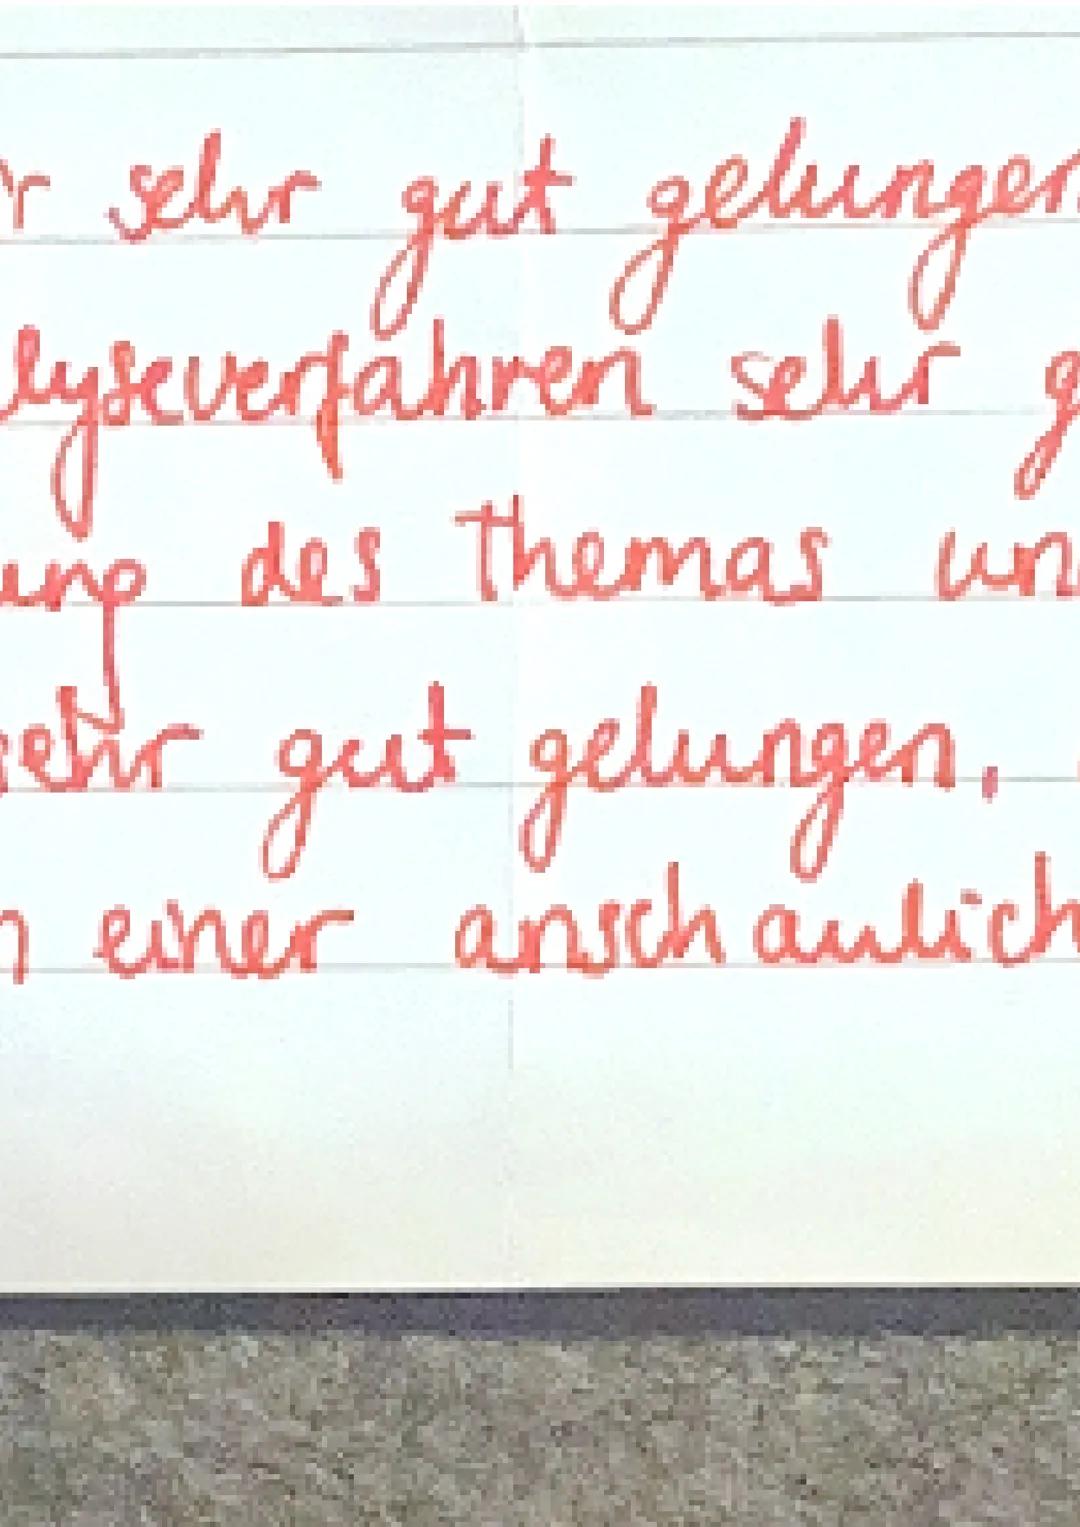 r sehr gut gelungen
lyseverfahren sehr g
ung des Themas un
sehr gut gelungen,
n einer anschaulich